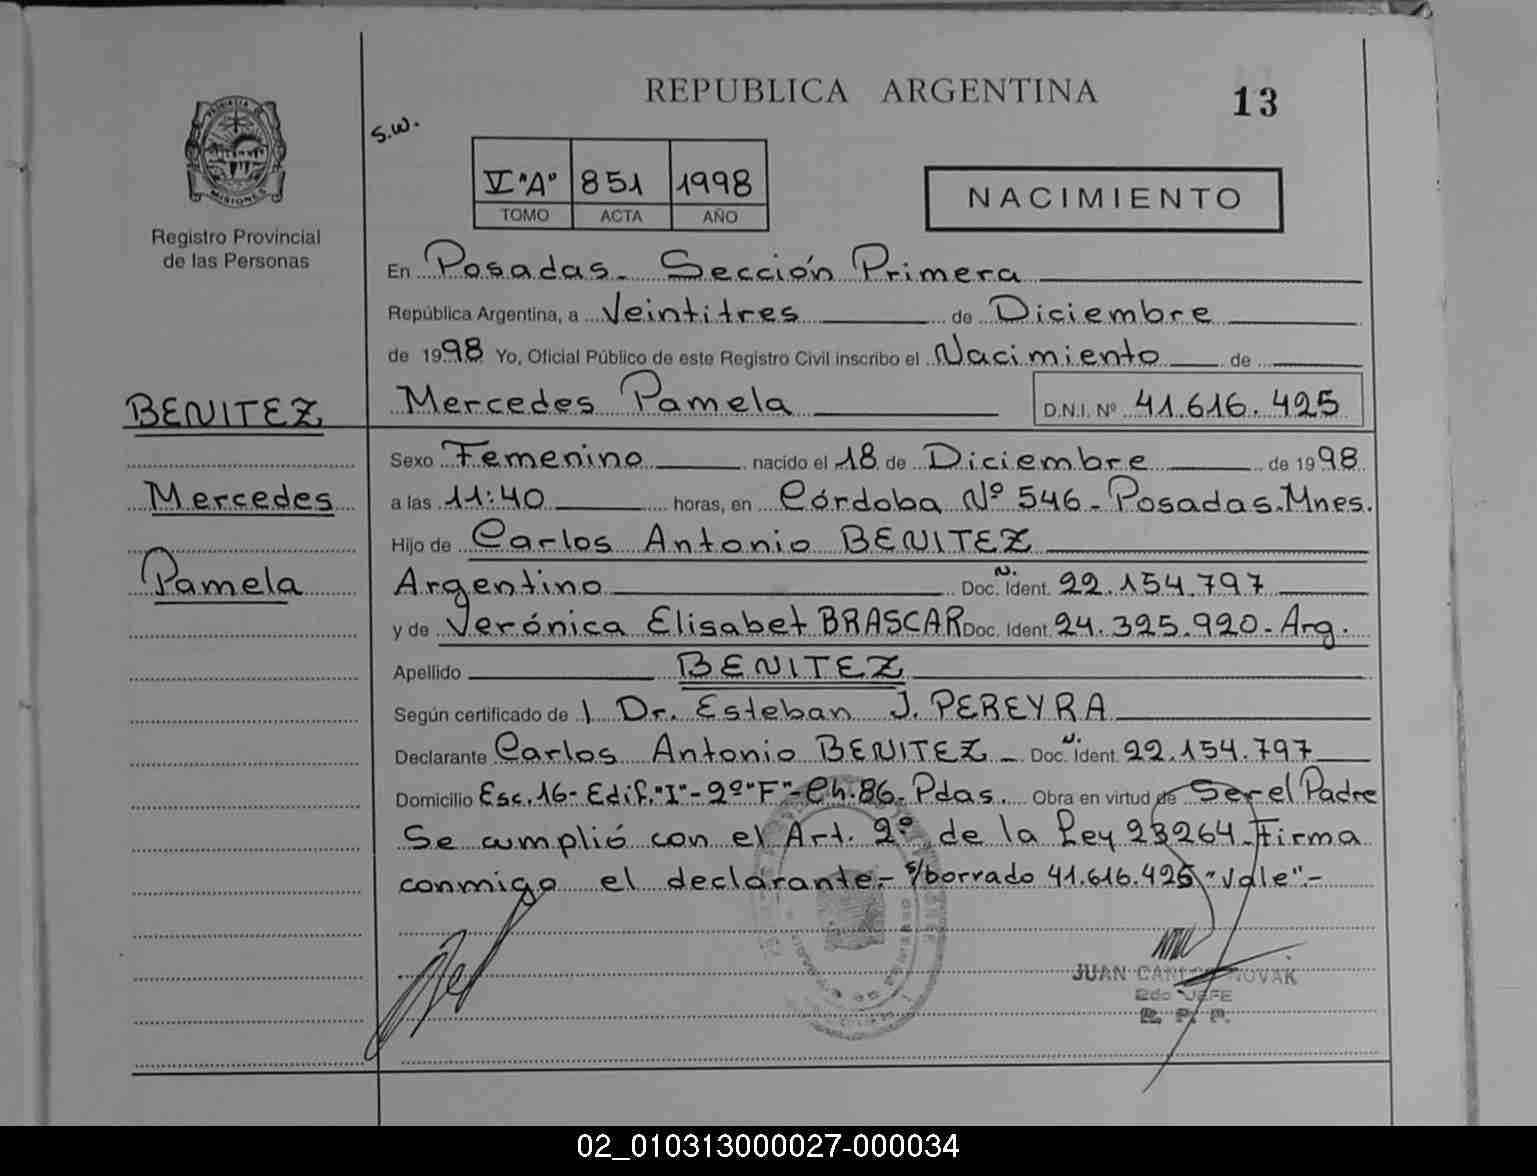 REPUBLICA ARGENTINA
13
S.W.
V "A" 851 1998
TOMO ACTA AÑO
NACIMIENTO
PROVINCIA DE
MISIONES
Registro Provincial
de las Personas
En Posadas - Sección Primera
República Argentina, a Veintitres de Diciembre
de 1998 Yo, Oficial Público de este Registro Civil inscribo el Nacimiento de
Mercedes Pamela D.N.I. Nº 41.616.425
BENITEZ
Mercedes
Pamela
Sexo Femenino nacido el 18 de Diciembre de 1998
a las 11:40 horas, en Córdoba Nº 546 - Posadas. Mnes.
Hijo de Carlos Antonio BENITEZ
Argentino Doc. N. Ident. 22.154.797
y de Verónica Elisabet BRASCAR Doc. Ident. 24.325.920 - Arg.
Apellido BENITEZ
Según certificado de Dr. Esteban J. PEREYRA
Declarante Carlos Antonio BENITEZ - Doc. N. Ident. 22.154.797
Domicilio Esc. 16 - Edif. "I" - 2º "F" - Ch. 86 - Pdas. Obra en virtud de Ser el Padre
Se cumplió con el Art. 2º de la Ley 23264 - Firma
conmigo el declarante.- s/borrado 41.616.425 "Vale".-
JUAN CARLOS NOVAK
2do JEFE
R. P. P.
02_010313000027-000034